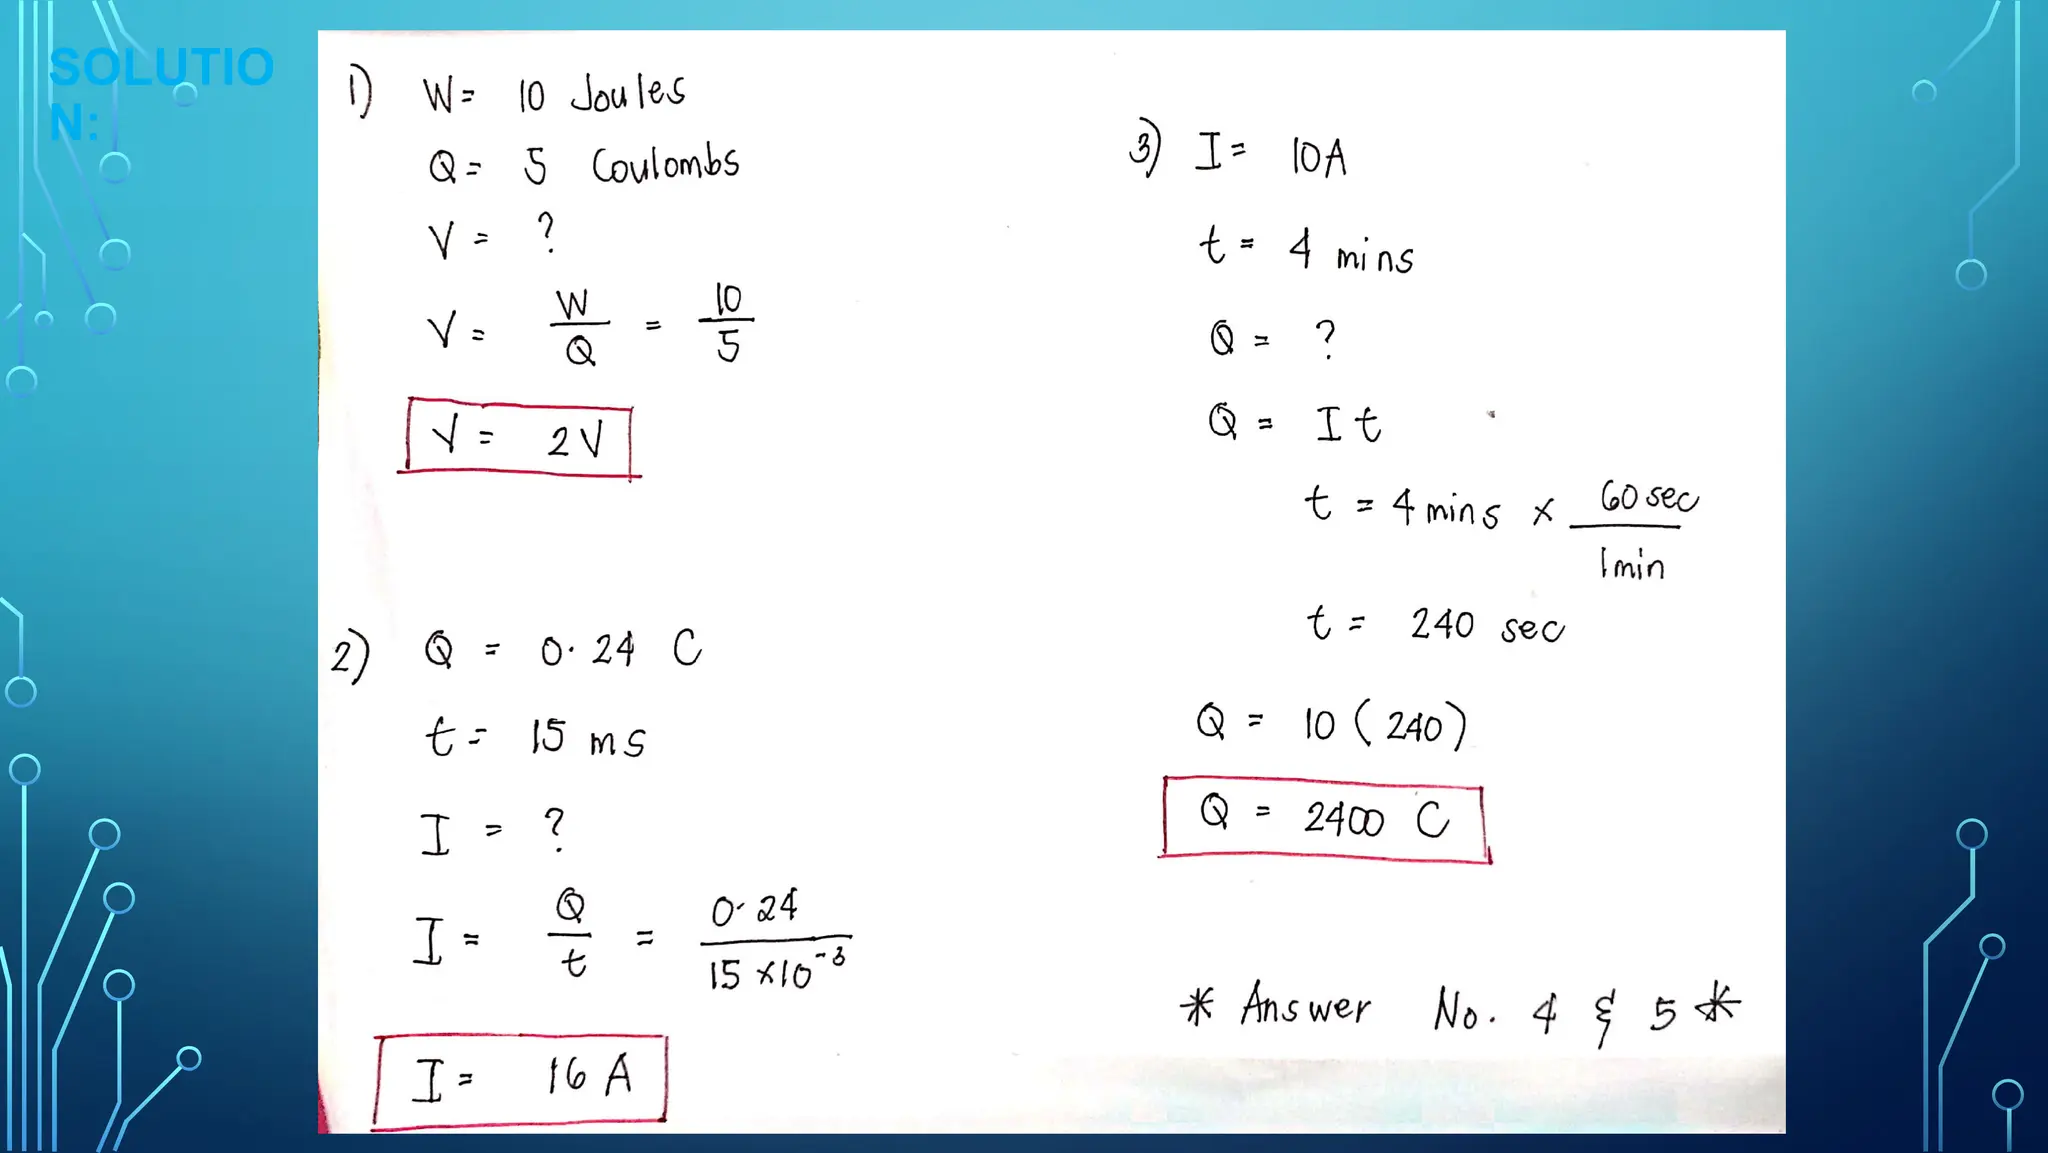 SOLUTIO
N:
1) W = 10 Joules
Q = 5 Coulombs
V = ?
V = W/Q = 10/5
V = 2V
2) Q = 0.24 C
t = 15 ms
I = ?
I = Q/t = 0.24/15 x10⁻³
I = 16 A
3) I = 10A
t = 4 mins
Q = ?
Q = I t
t = 4 mins x 60 sec/1 min
t = 240 sec
Q = 10 (240)
Q = 2400 C
* Answer No. 4 & 5 *